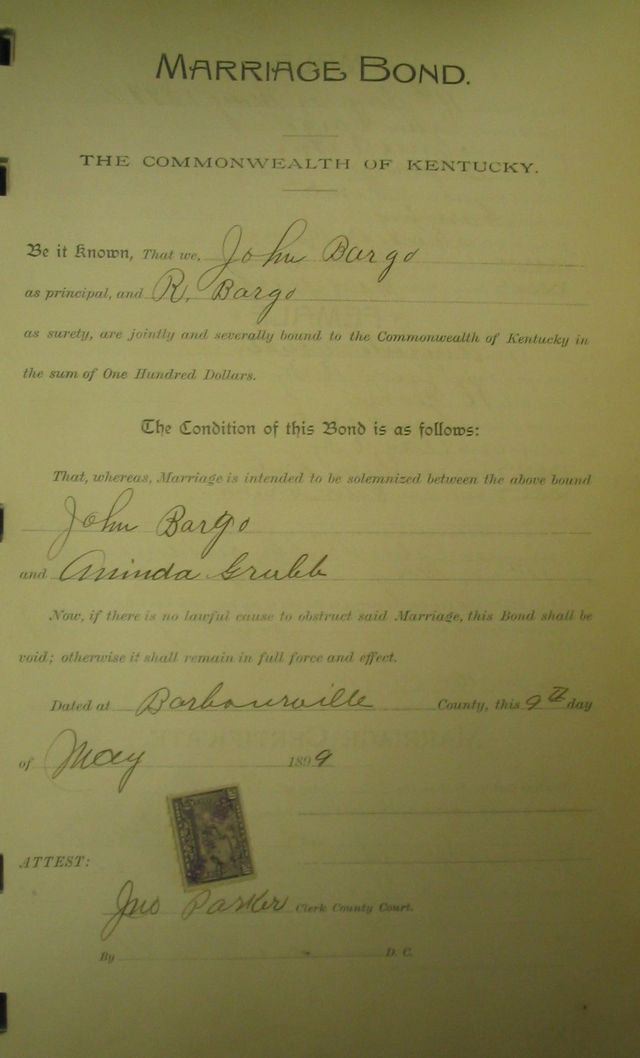 MARRIAGE BOND.
THE COMMONWEALTH OF KENTUCKY.
Be it Known, That we, John Bargo
as principal, and R. Bargo
as surety, are jointly and severally bound to the Commonwealth of Kentucky in
the sum of One Hundred Dollars.
The Condition of this Bond is as follows:
That, whereas, Marriage is intended to be solemnized between the above bound
John Bargo
and Aninda Grubb
Now, if there is no lawful cause to obstruct said Marriage, this Bond shall be
void; otherwise it shall remain in full force and effect.
Dated at Barbourville County, this 9th day
of May 1899
ATTEST:
Jno Parker Clerk County Court.
By D. C.